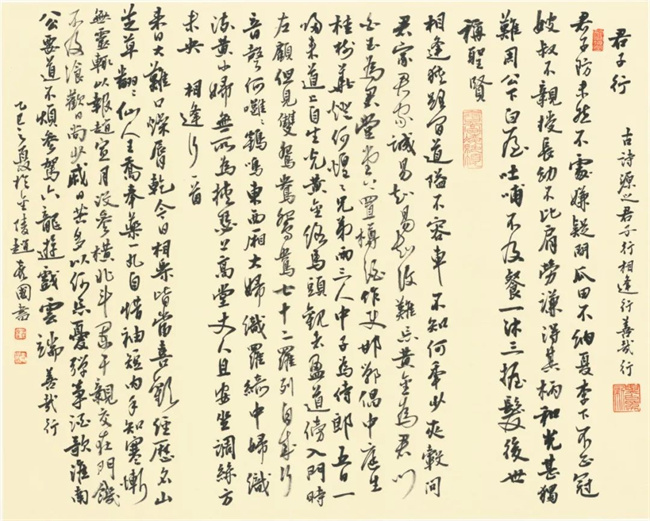 君子行
古诗源之君子行相逢行善哉行
君子防未然不處嫌疑間瓜田不納履李下不正冠
嫂叔不親授長幼不比肩勞謙得其柄和光甚獨
難周公下白屋吐哺不及餐一沐三握髮後世
稱聖賢
相逢狹路間道隘不容車不知何年少夾轂問
君家君家誠易知易知復難忘黃金為君門
白玉為君堂堂上置樽酒作使邯鄲倡中庭生
桂樹華燈何煌〻兄弟兩三人中子為侍郎五日一
歸來道上自生光黃金絡馬頭觀者盈道傍入門時
左顧但見雙鴛鴦鴛鴦七十二羅列自成行
音聲何噰〻鶴鳴東西廂大婦織羅綺中婦織
流黃小婦無所為挾瑟上高堂丈人且安坐調絲方
未央 相逢行一首
來日大難口燥脣乾今日相樂皆當喜歡經歷名山
芝草翻〻仙人王喬奉藥一丸自惜袖短內手知寒慚
無靈輒以報趙宣月沒參橫北斗闌干親交在門饑
不及飡歡日尚少戚日苦多以何忘憂彈箏酒歌淮南
公要道不煩參駕六龍遊戲雲端 善哉行
乙巳之夏於金陵趙國書